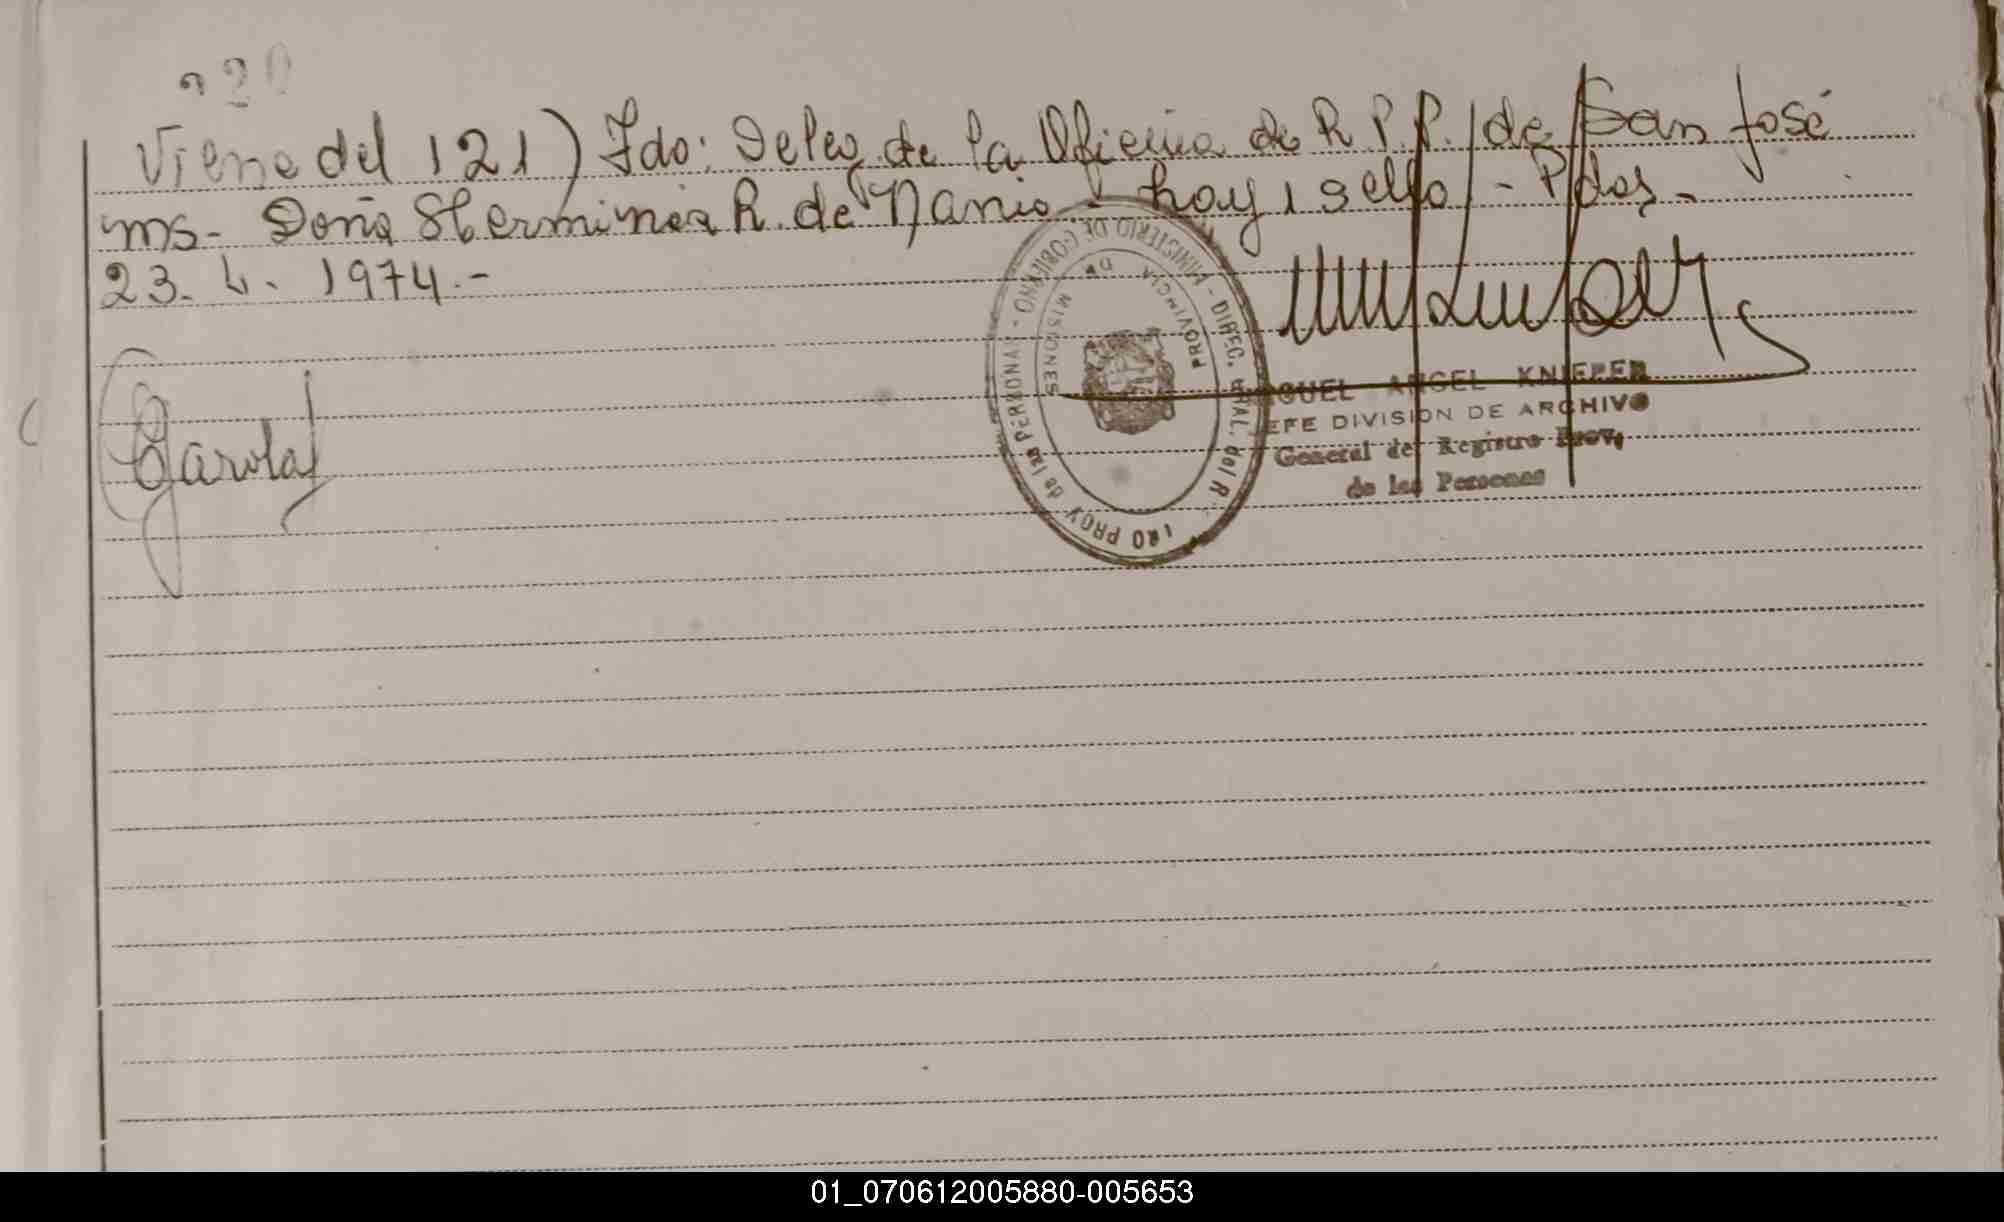 220
Viene del 121) Fdo: Deleg. de la Oficina de R.P.P. de San José
Ms - Doña Herminia R. de Nanio - hay 1 sello - Pdas -
23. 4. 1974.-
MINISTERIO DE GOBIERNO - DIREC. GRAL. del R TRO PROV de las PERSONAS -
PROVINCIA DE MISIONES
GUEL ANGEL KNIEPER
EFE DIVISION DE ARCHIVO
General del Registro Prov.
de las Personas
Garola
01_070612005880-005653